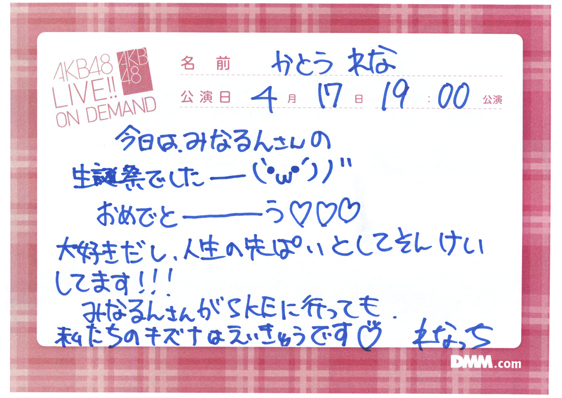 AKB48
LIVE!!
ON DEMAND
AKB
48
名前 かとう れな
公演日 4月 17日 19:00 公演
今日は、みなるんさんの
生誕祭でしたー(`•ω•´))"
おめでとーーう♡♡♡
大好きだし、人生の先ぱいとしてそんけい
してます!!!
みなるんさんがSKEに行っても、
私たちのキズナはえいきゅうです♡ れなっち
DMM.com